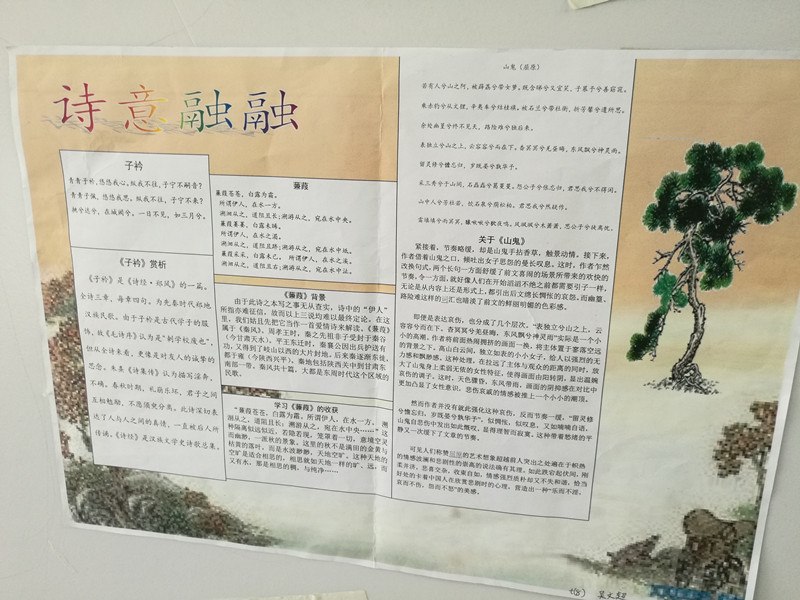 诗意融融
子衿
青青子衿，悠悠我心。纵我不往，子宁不嗣音？
青青子佩，悠悠我思。纵我不往，子宁不来？
挑兮达兮，在城阙兮。一日不见，如三月兮。
《子衿》赏析
《子衿》是《诗经·郑风》的一篇。
全诗三章，每章四句。为先秦时代郑地
汉族民歌。由于子衿是古代学子的服
饰，故《毛诗序》认为是"刺学校废也"，
但从全诗来看，更像是对友人的诚挚的
思念。朱熹《诗集传》认为描写淫奔，
不确。春秋时期，礼崩乐坏，君子之间
互相勉励，不愿须臾分离。此诗深切表
达了人与人之间的真情，一直被后人所
传诵。《诗经》是汉族文学史诗歌总集，
蒹葭
蒹葭苍苍，白露为霜。
所谓伊人，在水一方。
溯洄从之，道阻且长；溯游从之，宛在水中央。
蒹葭萋萋，白露未晞。
所谓伊人，在水之湄。
溯洄从之，道阻且跻；溯游从之，宛在水中坻。
蒹葭采采，白露未已。所谓伊人，在水之涘。
溯洄从之，道阻且右；溯游从之，宛在水中沚。
《蒹葭》背景
由于此诗之本写之事无从查实，诗中的"伊人"
所指亦难征信，故而以上三说均难以最终定论。在这
里，我们姑且先把它当作一首爱情诗来解读。《蒹葭》
属于《秦风》。周孝王时，秦之先祖非子受封于秦谷
（今甘肃天水）。平王东迁时，秦襄公因出兵护送有
功，又得到了岐山以西的大片封地。后来秦逐渐东徙，
都于雍（今陕西兴平）。秦地包括陕西关中到甘肃东
南部一带。秦风共十篇，大都是东周时代这个区域的
民歌。
学习《蒹葭》的收获
"蒹葭苍苍，白露为霜。所谓伊人，在水一方。溯
洄从之，道阻且长；溯游从之，宛在水中央……"这
种隔离似远似近，若隐若现，笼罩着一切，意境空灵
而幽渺，一派秋的景象。这里的秋不是满田的金黄与
枯黄的落叶，而是水波渺渺，天地空旷。这种天地的
空旷是适合相思的，相思就如天地一样的旷、远，而
又有水，那是相思的稠，与纯净……
山鬼（屈原）
若有人兮山之阿，被薜荔兮带女萝。既含睇兮又宜笑，子慕予兮善窈窕。
乘赤豹兮从文狸，辛夷车兮结桂旗。被石兰兮带杜衡，折芳馨兮遗所思。
余处幽篁兮终不见天，路险难兮独后来。
表独立兮山之上，云容容兮而在下。杳冥冥兮羌昼晦，东风飘兮神灵雨。
留灵修兮憺忘归，岁既晏兮孰华予。
采三秀兮于山间，石磊磊兮葛蔓蔓。怨公子兮怅忘归，君思我兮不得闲。
山中人兮芳杜若，饮石泉兮荫松柏。君思我兮然疑作。
雷填填兮雨冥冥，猿啾啾兮狖夜鸣。风飒飒兮木萧萧，思公子兮徒离忧。
关于《山鬼》
紧接着，节奏略缓，却是山鬼手拈香草，触景动情。接下来，
作者借着山鬼之口，倾吐出女子思怨的曼长叹息。这时，作者乍然
改换句式，两个长句一方面舒缓了前文喜闹的场景所带来的欢快的
节奏，令一方面，就好像人们在开始滔滔不绝之前都需要引子一样，
无论是从内容上还是形式上，都引出后文绵长惆怅的哀怨。而幽篁、
路险难这样的词汇也暗淡了前文的鲜丽明媚的色彩感。
即便是表达哀伤，也分成了几个层次。"表独立兮山之上，云
容容兮而在下。杳冥冥兮羌昼晦，东风飘兮神灵雨"实际是一个小
小的高潮。作者将前面热闹拥挤的画面一换，将主体置于寥落空远
的背景之下，高山白云间，独立如表的小小女子，给人以强烈的无
力感和飘渺感。这种处理，在拉远了主体与观众的距离的同时，放
大了山鬼身上柔弱无依的女性特征，使得画面由阳转阴，显出温婉
哀伤的调子。这时，天色骤昏，东风带雨，画面的阴抑感在对比中
更加凸显了女性意识。悲伤哀戚的情感被推上一个小小的潮顶。
然而作者并没有就此强化这种哀伤，反而节奏一缓，"留灵修
兮憺忘归，岁既晏兮孰华予"，似惆怅，似叹息，又如喃喃自语，
山鬼自悲伤中发出如此慨叹，显得理智而寂寞。这种带着愁绪的平
静又一次缓下了文章的节奏。
可见人们称赞屈原的艺术想象超越前人突出之处遍在于炽热
的情感波澜和悲剧性的崇高的说法确有其理。如此跌宕起伏间，刚
柔并济，悲喜交杂，收束自如，情感强烈质朴却又不失和谐，恰当
好处的卡着中国人在欣赏悲剧时的心理，营造出一种"乐而不淫，
哀而不伤，怨而不怒"的美感。